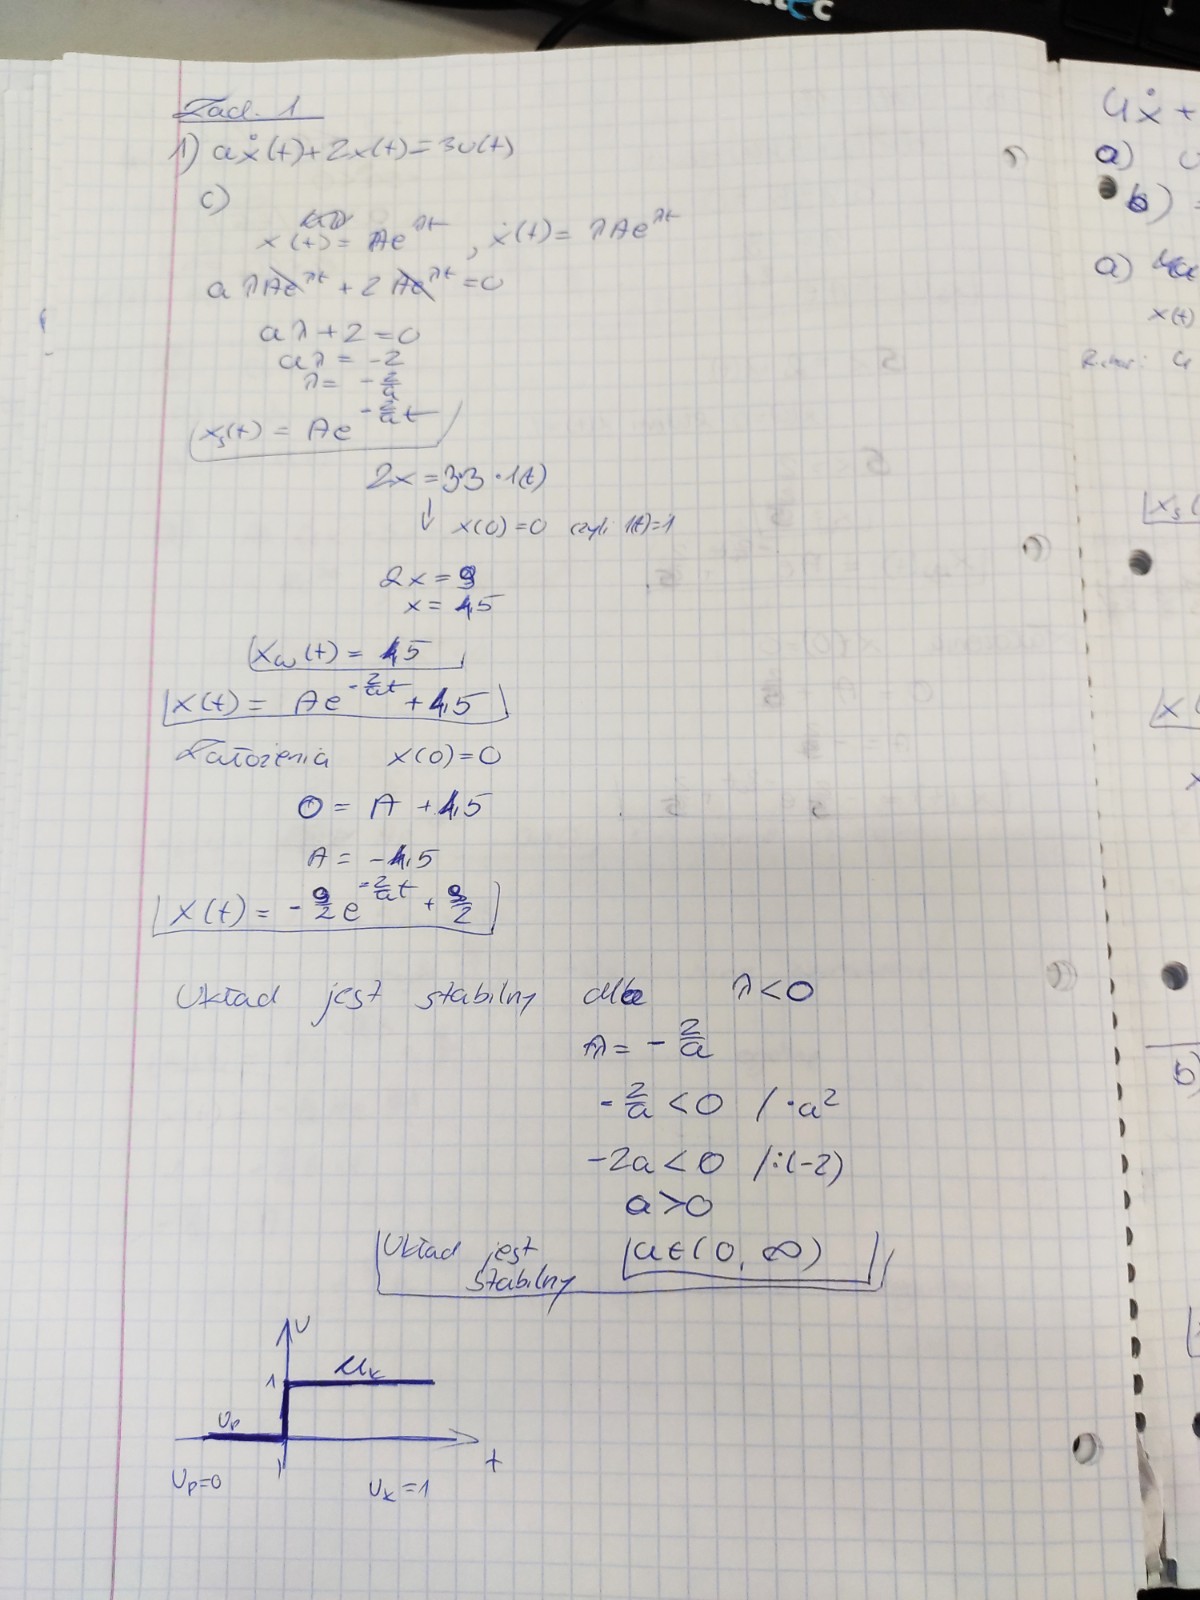 Zad. 1
1) aẋ(t)+2x(t)=3u(t)
c)
x(t)= Ae^λt , ẋ(t)= λAe^λt
a λAe^λt + 2 Ae^λt =0
aλ+2=0
aλ= -2
λ= -2/a
xs(t) = Ae^-2/a t
2x=3·3·1(t)
↓ x(0)=0 czyli 1(t)=1
2x=9
x=4,5
xw(t)= 4,5
x(t)= Ae^-2/a t +4,5
Założenia x(0)=0
0= A +4,5
A= -4,5
x(t)= -9/2 e^-2/a t + 9/2
Układ jest stabilny dla λ<0
λ= -2/a
-2/a <0 /·a²
-2a<0 /:(-2)
a>0
Układ jest stabilny a∈(0, ∞)
U
1 Uk
Up
t
Up=0 Uk=1
4ẋ+
a)
b)
a)
x(t)
xs(
x(
b)